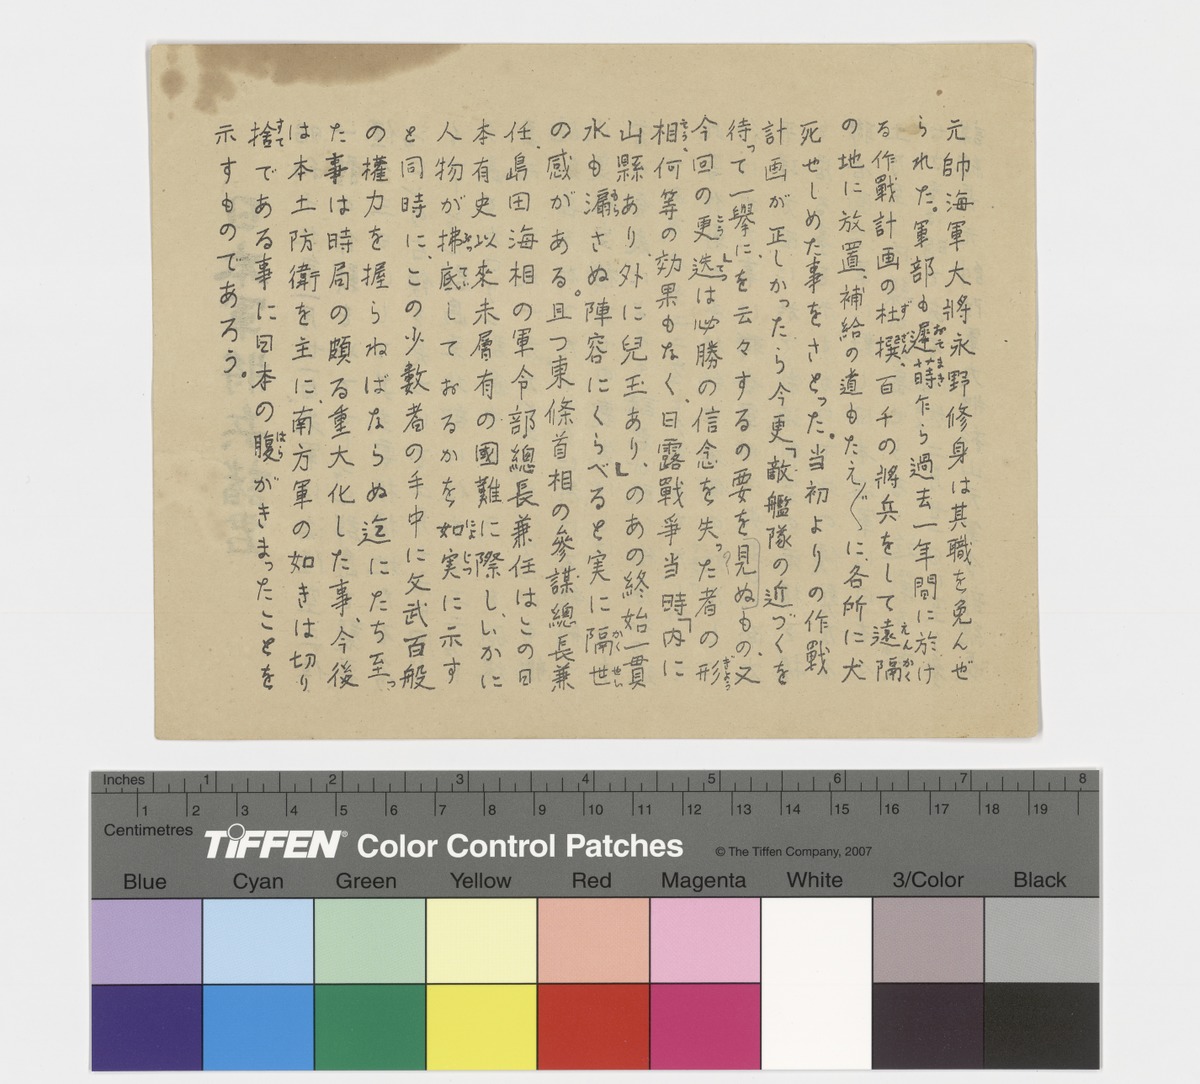 元帥海軍大將永野修身は其職を免んぜ
られた。軍部も遲蒔乍ら過去一年間に於け
る作戰計画の杜撰、百千の將兵をして遠隔
の地に放置、補給の道もたえ〲に、各所に犬
死せしめた事をさとった。当初よりの作戰
計画が正しかったら今更「敵艦隊の近づくを
待って一擧に」を云々するの要を見ぬもの、又
今回の更迭は必勝の信念を失った者の形
相、何等の効果もなく、日露戰爭当時「内に
山縣あり、外に兒玉あり、」のあの終始一貫
水も漏さぬ陣容にくらべると実に隔世
の感がある。且つ東條首相の參謀總長兼
任、島田海相の軍令部總長兼任はこの日
本有史以來未曾有の國難に際し、いかに
人物が拂底しておるかを如実に示す
と同時に、この少數者の手中に文武百般
の權力を握らねばならぬ迄にたち至っ
た事は時局の頗る重大化した事、今後
は本土防衛を主に、南方軍の如きは切り
捨である事に日本の腹がきまったことを
示すものであろう。
おそまき
ずざん
えんかく
こうてつ
ぎょう
そう
もら
かくせい
ふってい
にょじつ
すて
はら
Inches 1 2 3 4 5 6 7 8
1 2 3 4 5 6 7 8 9 10 11 12 13 14 15 16 17 18 19
Centimetres
TIFFEN® Color Control Patches © The Tiffen Company, 2007
Blue Cyan Green Yellow Red Magenta White 3/Color Black